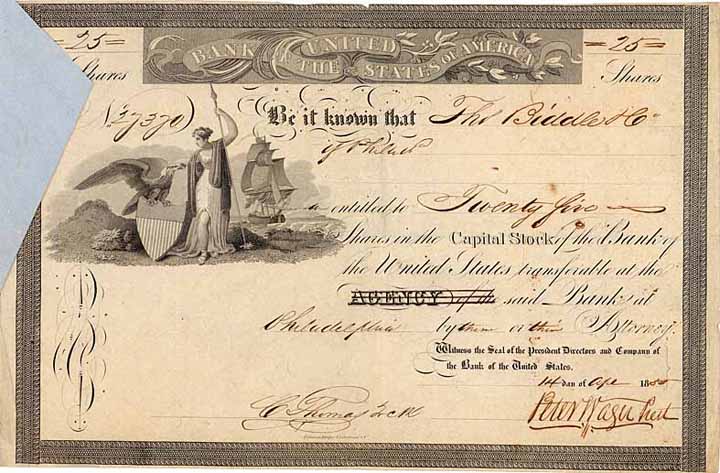 25 25
BANK OF THE UNITED STATES OF AMERICA
Shares Shares
No 37370 Be it known that Thos Biddle & Co
of Philada
is entitled to Twenty five
Shares in the Capital Stock of the Bank of
the United States, transferable at the
AGENCY of the said Bank at
Philadelphia by them or their Attorney.
Witness the Seal of the President Directors and Company of
the Bank of the United States.
14 day of Apr 18
C. Thomas